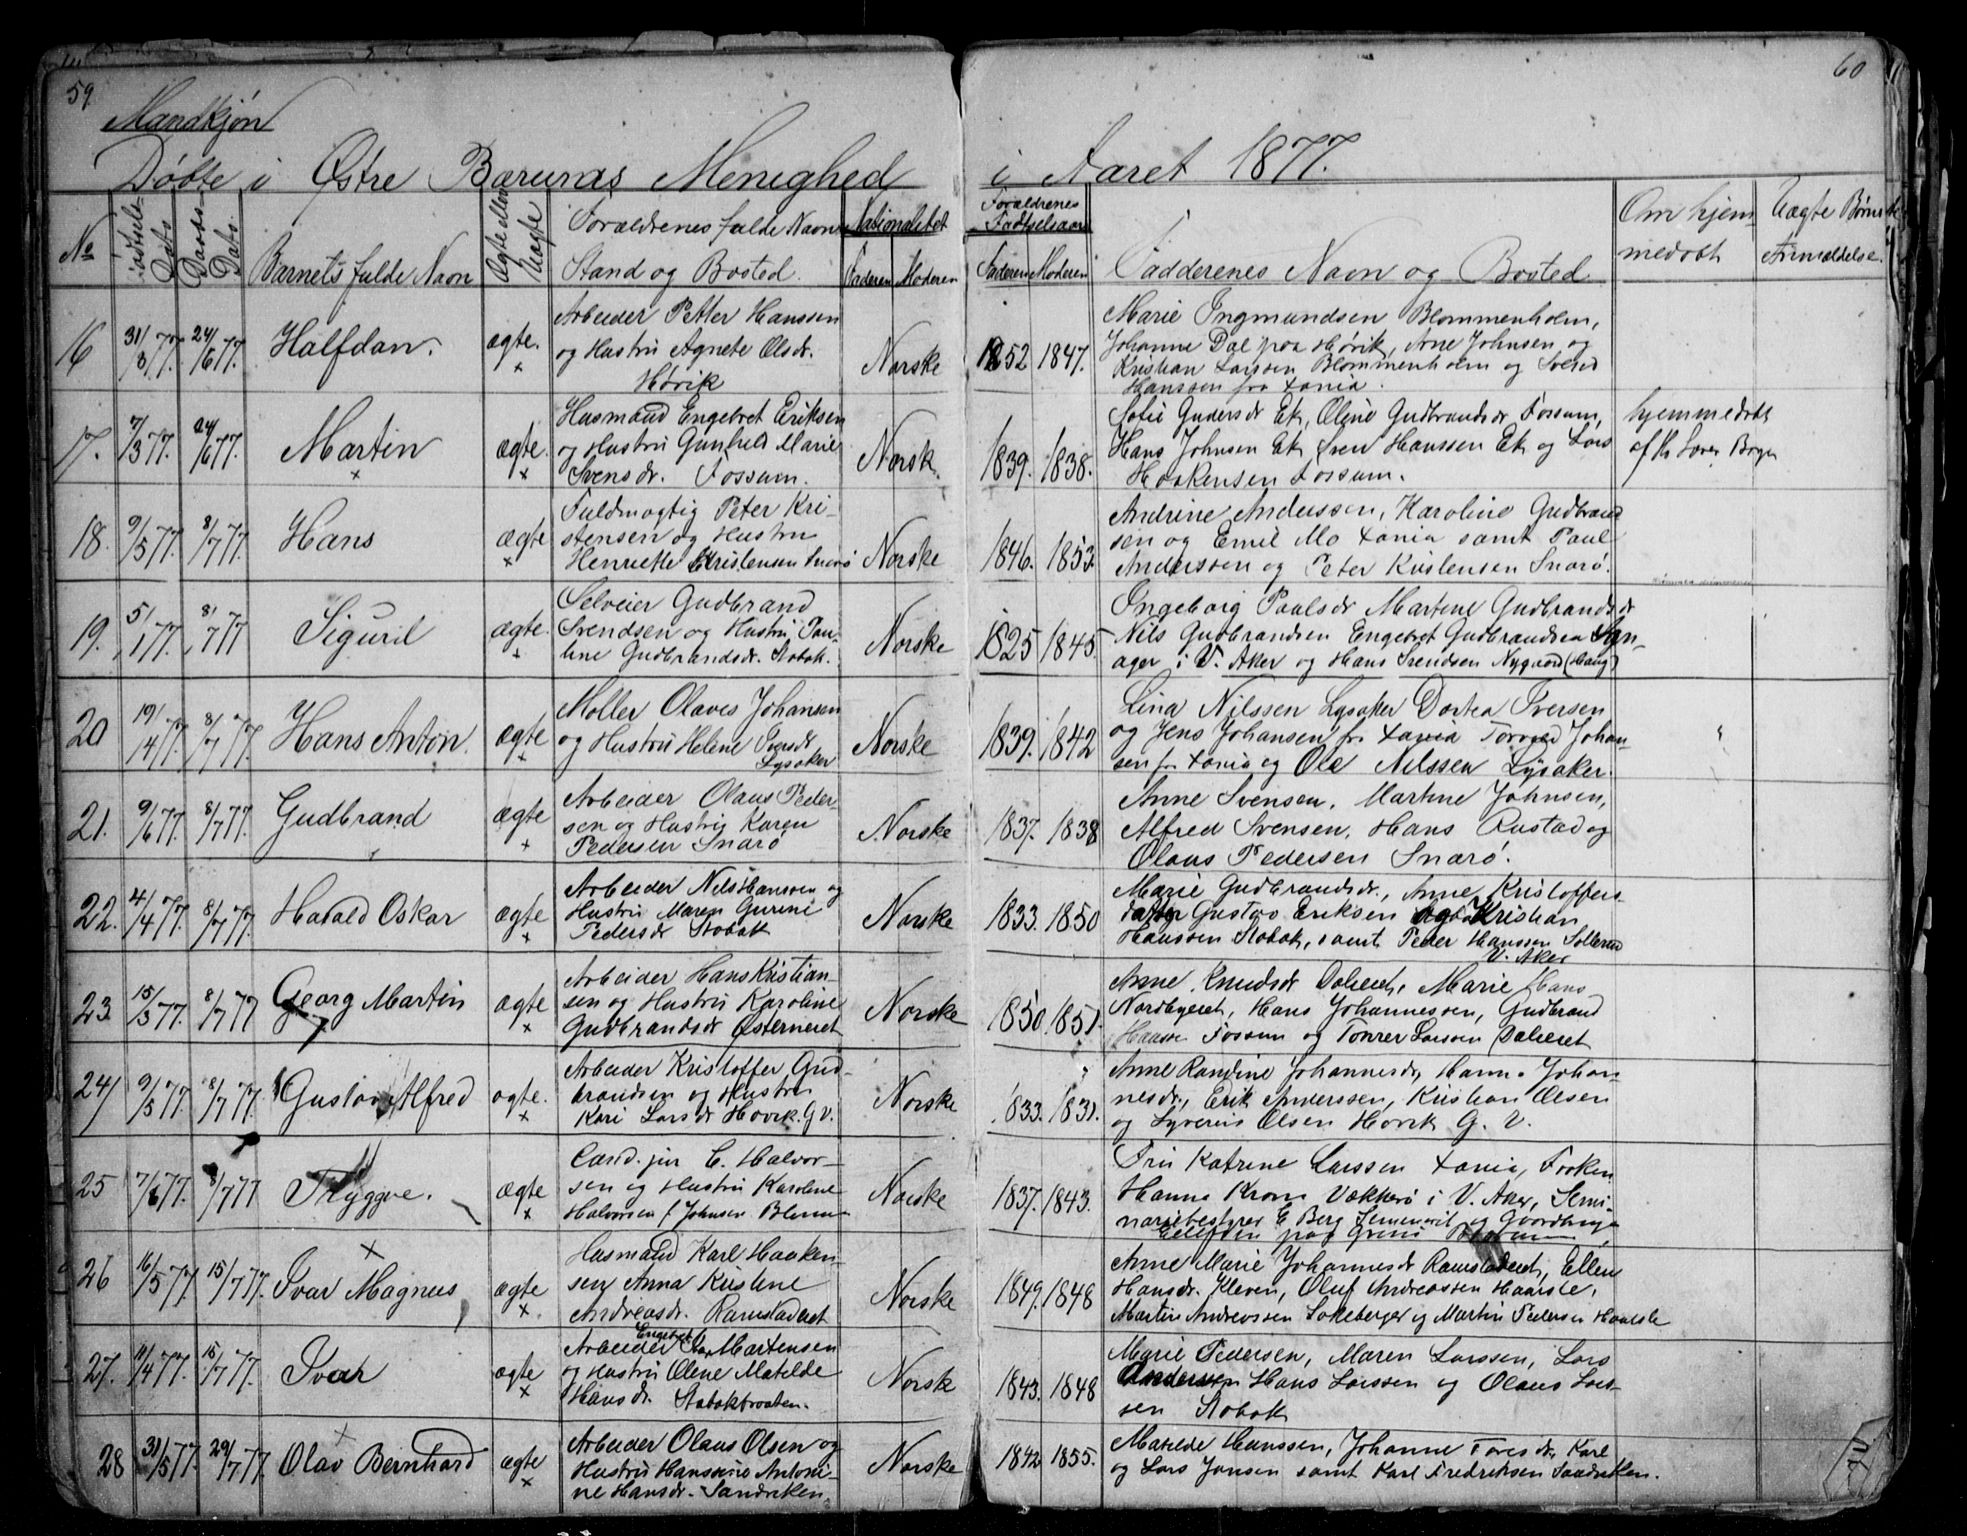 59
60
Mandkjøn
Døbte i Østre Bærums Menighed i Aaret 1877.
No
Fødsels-Dato
Daabs-Dato.
Barnets fulde Navn
Ægte eller Uægte
Forældrenes fulde Navn
Stand og Bosted.
Nationalitet
Faderen Moderen
Forældrenes Fødselsaar
Faderen Moderen
Fadderenes Navn og Bosted
Om hjemmedøbt
Uægte Børns
Anmældelse.
16 31/3 77. 24/6 77. Halfdan. ægte. Norske 1852 1847.
Arbeider Petter Hanssen
og Hustru Agnete Olsdr.
Høvik
Marie Ingmundsen Blommenholm,
Johanne Dal paa Høvik, Arne Johnsen og
Kristian Larssen Blommenholm og
Hanssen fra Xania.
17. 7/3 77. 24/6 77. Martin ægte. Norske 1839. 1838.
Husmand Engebret Eriksen
og Hustru Gunhild Marie
Svensdr. Fossum.
Sofie Gudersdr Ek, Oline Gudbrandsdr Fossum,
Hans Johnsen Ek, Sven Hanssen Ek og Lars
Haakensen Fossum.
hjemmedøbt
af
18. 9/5 77. 8/7 77. Hans ægte Norske 1846. 1853.
Fuldmægtig Peter Kri-
stensen og Hustru
Henriette Kristensen Snarø
Andrine Anderssen, Karoline Gudbrand
sen og Emil Mo Xania samt Paul
Anderssen og Peter Kristensen Snarø.
19. 5/1 77. 8/7 77 Sigurd ægte. Norske 1825 1845.
Selveier Gudbrand
Svendsen og Hustru Pau-
line Gudbrandsdr. Stabæk.
Ingeborg Paulsdr Martine Gudbrandsdr
Nils Gudbrandsen Engebret Gudbrandsen
ager i V. Aker og Hans Svendsen Nygaard (Haug)
20 19/4 77. 8/7 77. Hans Anton. ægte Norske 1839. 1842
Møller Olaves Johansen
og Hustru Helene Iversdr
Lysaker
Lina Nilssen Lysaker Dortea Iversen
og Jens Johansen fr Xania Torvald Johan-
sen fr Xania og Ole Nilssen Lysaker.
21. 9/6 77. 8/7 77. Gudbrand ægte Norske 1837. 1838
Arbeider Olaus Peder-
sen og Hustru Karen
Pedersen Snarø
Anne Svensen, Martine Johnsen,
Alfred Svensen, Hans Rustad og
Olaus Pedersen Snarø.
22. 4/4 77. 8/7 77. Harald Oskar ægte Norske 1833. 1850
Arbeider Nils Hanssen og
Hustru Maren Gurine
Pedersdr Stabæk
Marie Gudbrandsdr., Anne Kristoffers-
datter Gustav Eriksen og Kristian
Hanssen Stabæk, samt Peder Hanssen
V. Aker
23 15/3 77. 8/7 77 Georg Martin ægte Norske 1850. 1851.
Arbeider Hans Kristian-
sen og Hustru Karoline
Gudbrandsdr Østerneret
Anne Knudsdr Daleret, Marie Hans
Nordbyeret, Hans Johannessen, Gudbrand
Hansse Fossum og Larsen Daleret
24 9/5 77. 8/7 77. Gustav Alfred ægte. Norske 1833. 1831.
Arbeider Kristoffer Gud-
brandsen og Hustru
Kari Larsdr Høvik. G V.
Anne Randine Johannesdr, Hanna Johan-
nesdr., Erik Anderssen, Kristian Olsen
og Syverin Olsen Høvik G. V.
25 7/6 77. 8/7 77 Tryggve. ægte Norske 1837. 1843.
Cand. jur C. Halvor-
sen og Hustru Karoline
Halvorsen f. Johnsen
Fru Katrine Larssen Xania, Frøken
Hanna Krom Vækkerø i V. Aker, Semi-
nariebestyrer E Berg og Gaardbruger
paa Grini Bærum
26 16/5 77. 15/7 77. Ivar Magnus ægte Norske 1849. 1848
Husmand Karl Haaken-
sen Anna Kristine
Andreasdr. Ramstaderet
Anne Marie Johannesdr Ramstaderet, Ellen
Hansdr. Kleven, Oluf Andreassen Haarsle,
Martin Andreassen Løkeberget og Martin Pedersen
27. 11/4 77. 15/7 77. Ivar ægte Norske 1843. 1848
Arbeider Engebret Martensen
og Hustru Oline Matilde
Hansdr. Stabækbraaten.
Marie Pedersen, Maren Larssen, Lars
Andersen Hans Larssen og Olaus Lars-
sen Stabæk
28 31/5 77. 29/7 77. Olav Bernhard ægte Norske 1842 1855.
Arbeider Olaus Olsen og
Hustru Hanssine Antoni-
ne Hansdr. Sandviken.
Matilde Hanssen, Johanne Toresdr, Karl
og Lars Jonsen samt Karl Fredriksen Sandviken.